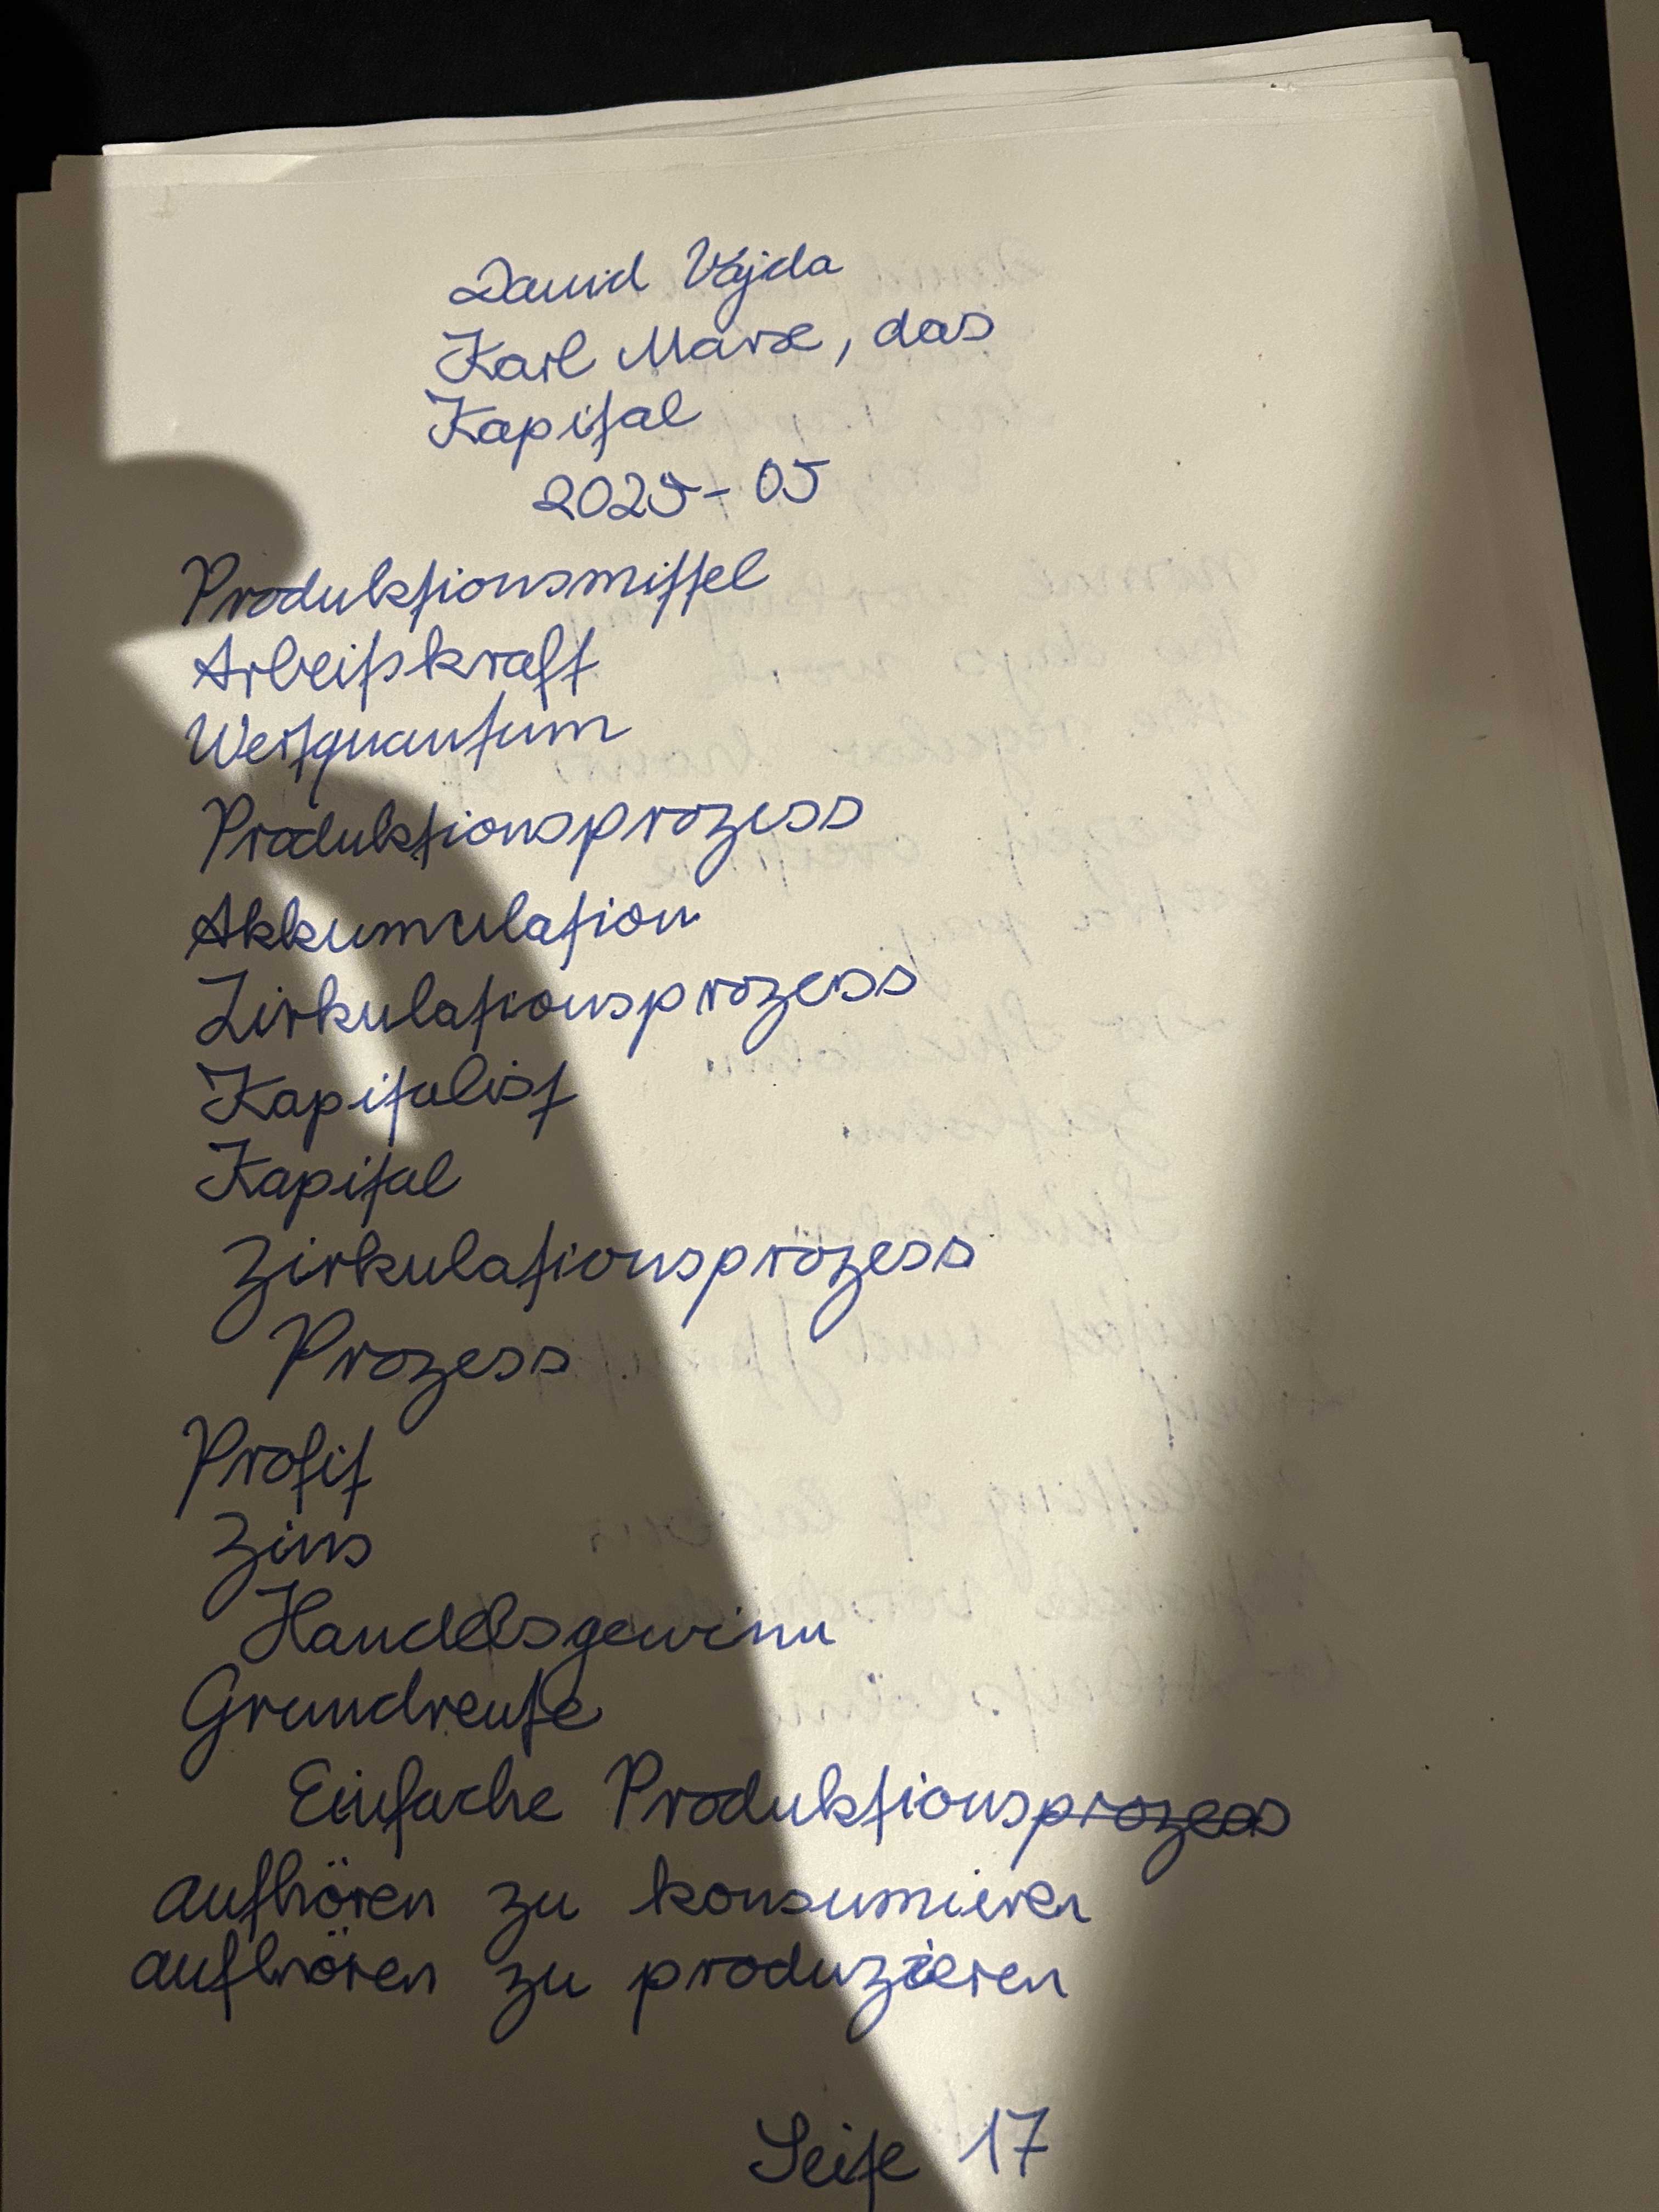 David Vajda
Karl Marx, das
Kapital
2025-05
Produktionsmittel
Arbeitskraft
Wertquantum
Produktionsprozess
Akkumulation
Zirkulationsprozess
Kapitalist
Kapital
Zirkulationsprozess
Prozess
Profit
Zins
Handelsgewinn
Grundrente
Einfache Produktionsprozess
aufhören zu konsumieren
aufhören zu produzieren
Seite 17